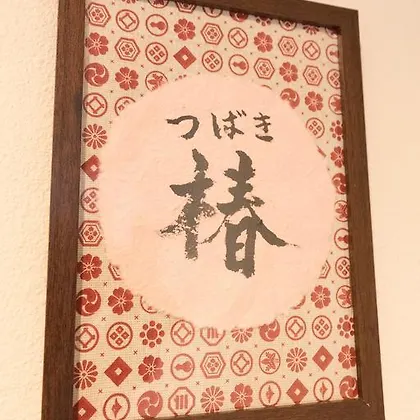 つばき
椿